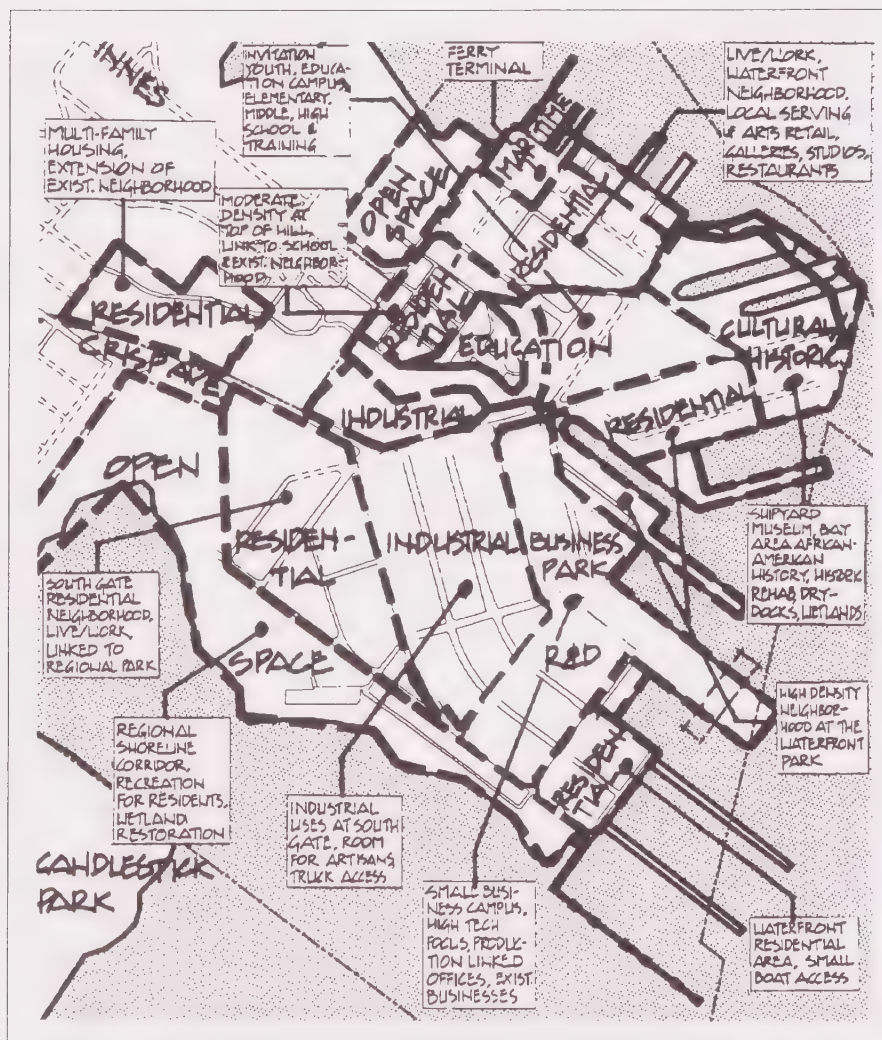 INNES
INVITATION
YOUTH, EDUCA-
TION CAMPUS,
ELEMENTARY,
MIDDLE, HIGH
SCHOOL &
TRAINING
FERRY
TERMINAL
LIVE/WORK,
WATERFRONT
NEIGHBORHOOD,
LOCAL SERVING
& ARTS RETAIL,
GALLERIES, STUDIOS,
RESTAURANTS
MULTI-FAMILY
HOUSING,
EXTENSION OF
EXIST. NEIGHBORHOOD
MODERATE
DENSITY AT
TOP OF HILL,
LINK TO SCHOOL
& EXIST. NEIGHBOR-
HOOD
OPEN
SPACE
MARITIME
RESIDENTIAL
RESIDEN-
TIAL
EDUCATION
CULTURAL/
HISTORIC
RESIDENTIAL
CRISP AVE
INDUSTRIAL
RESIDENTIAL
OPEN
RESIDEN-
TIAL
INDUSTRIAL
BUSINESS
PARK
SHIPYARD
MUSEUM, BAY
AREA AFRICAN-
AMERICAN
HISTORY, HISTORIC
REHAB, DRY-
DOCKS, WETLANDS
SOUTH GATE
RESIDENTIAL
NEIGHBORHOOD,
LIVE/WORK,
LINKED TO
REGIONAL PARK
SPACE
R&D
HIGH DENSITY
NEIGHBOR-
HOOD AT THE
WATERFRONT
PARK
REGIONAL
SHORELINE
CORRIDOR,
RECREATION
FOR RESIDENTS,
WETLAND
RESTORATION
INDUSTRIAL
USES AT SOUTH
GATE, ROOM
FOR ARTISANS,
TRUCK ACCESS
RESIDEN
TIAL
CANDLESTICK
PARK
SMALL BUSI-
NESS CAMPUS,
HIGH TECH
FOCUS, PRODUC-
TION LINKED
OFFICES, EXIST.
BUSINESSES
WATERFRONT
RESIDENTIAL
AREA, SMALL
BOAT ACCESS